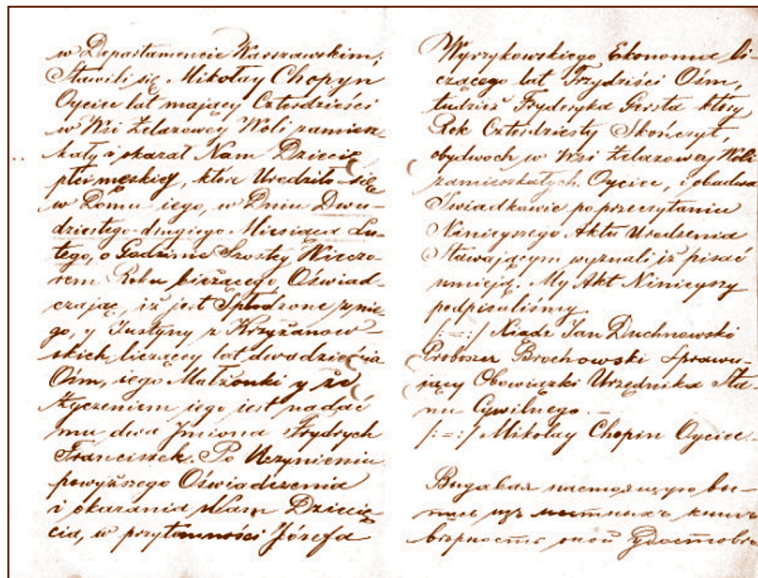 w Departamencie Warszawskim,
Stawili się Mikołay Chopyn
Oyciec lat mający Czterdzieści
w Wsi Żelazowey Woli zamiesz-
kały i okazał Nam Dziecię
płci męskiey, które Urodziło się
w Domu iego, w Dniu Dwu-
dziestego-drugiego Miesiąca Lu-
tego, o Godzinie Szostey Wieczo-
rem Roku bieżącego Oświad-
czając, iż jest Spłodzone z nie-
go, y Justyny z Krzyżanow-
skich liczącey lat dwadzieścia
Ośm, iego Małżonki y że
życzeniem iego jest nadać
mu dwa Jmiona Frydrych
Franciszek. Po Uczynieniu
powyższego Oświadczenia
i okazania Nam Dziecię-
cia, w przytomności Józefa
Wyrzykowskiego Ekonoma li-
czącego lat Trzydzieści Ośm,
tudzież Fryderyka Geszta który
Rok Czterdziesty Skończył,
obydwoch w Wsi Żelazowey Woli
zamieszkałych. Oyciec, i obadwa
Swiadkowie po przeczytaniu
Ninieyszego Aktu Urodzenia
Stawającym wyznali iż pisać
umieją. My Akt Ninieyszy
podpisaliśmy
/:=:/ Xiądz Jan Duchnowski
Proboszcz Brochowski Sprawu-
jący Obowiązki Urzędnika Sta-
nu Cywilnego. –
/:=:/ Mikołay Chopin Oyciec –
Выдавая настоящую вы-
пись изъ книгъ
вѣрность оной удостовѣ